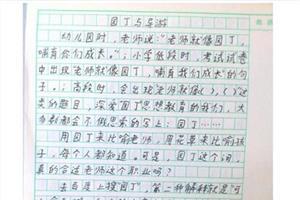 园丁与导游
幼儿园时，老师说："老师就像园丁，
哺育你们成长。"；小学低段时，考试试卷
中出现老师就像园丁，哺育我们成长"的句
子。；高段时，会出现老师就像( )，( )这
类的题目，深受园丁思想教育的我们，大
多都会不假思索的写上：园丁……
用园丁来比喻老师，用花草来比喻孩
子，每个人都知道。可是，园丁这个词，
真的合适老师这个职业吗？
去百度上搜园丁，第二种解释就是"可